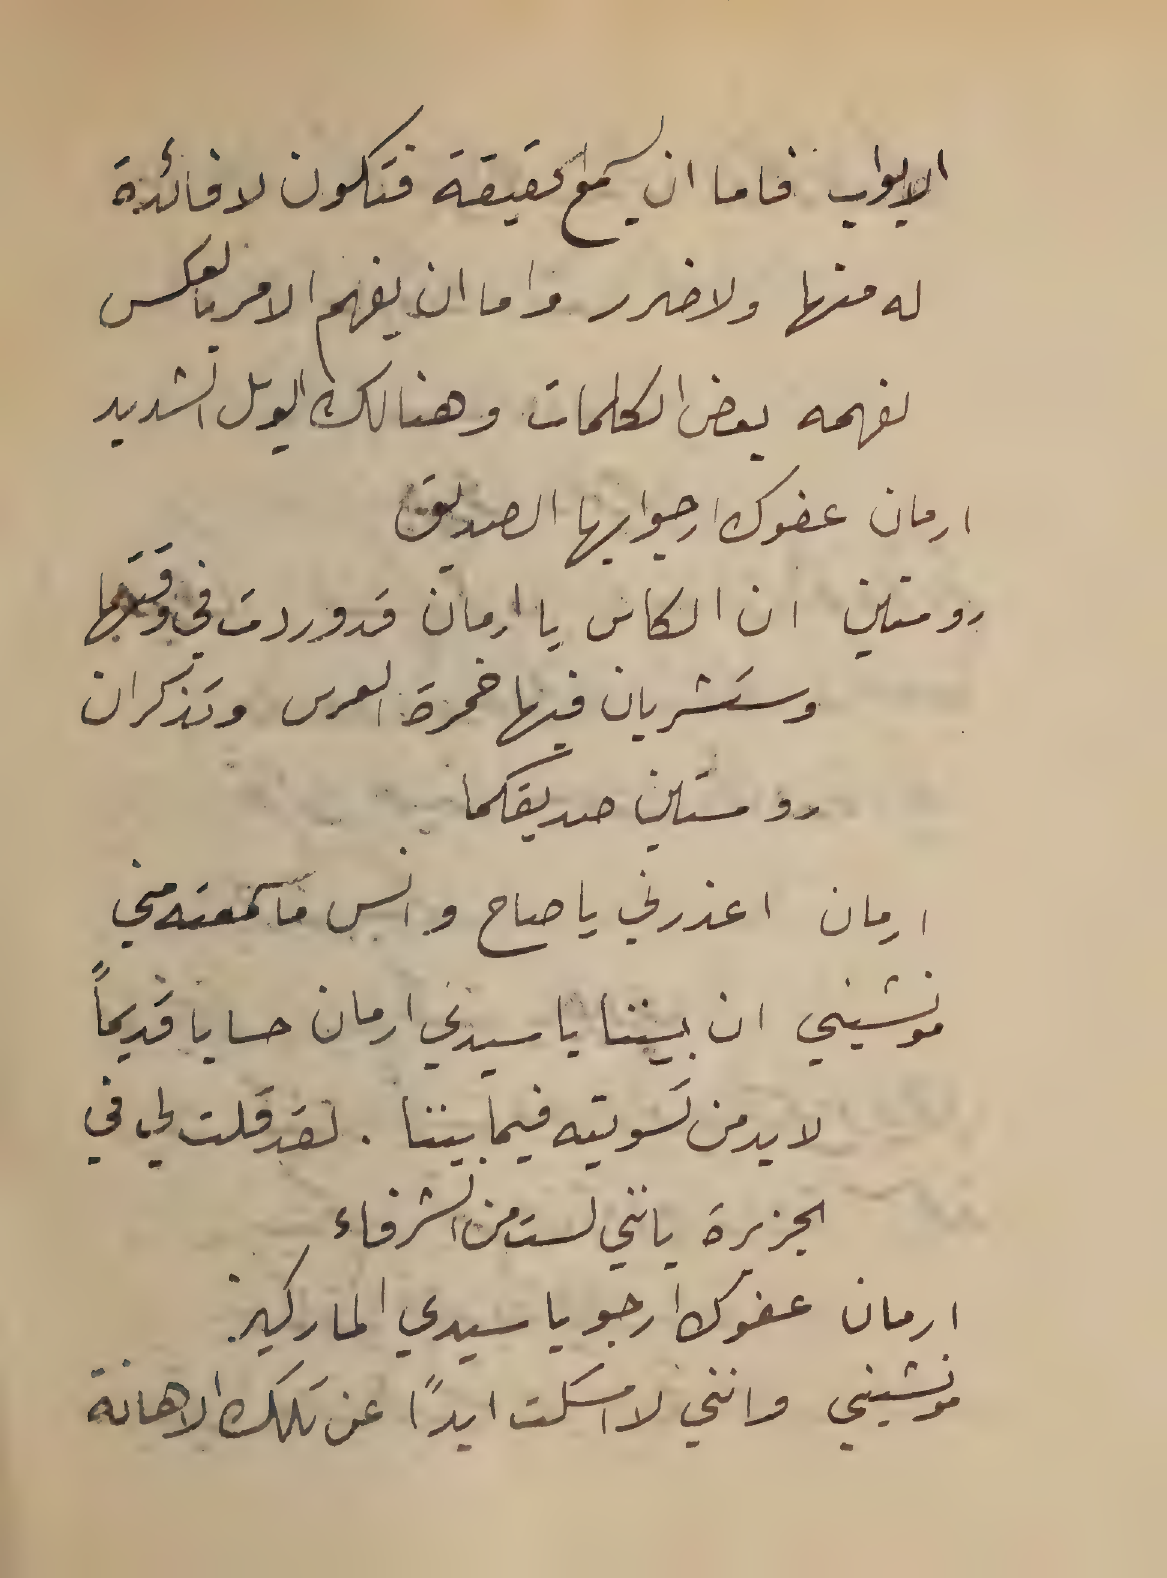 الابواب فاما ان يسمع الحقيقة فتكون لا فائدة
له منها ولا ضرر واما ان يفهم الامر بالعكس
لفهمه بعض الكلمات وهنالك الويل الشديد
ارمان عفوك ارجو ايها الصديق
رومتاين ان الكاس يا ارمان قد وردت في وقتها
وستشربان فيها خمرة العرس وتذكران
رومستاين صديقكما
ارمان اعذرني يا صاح وانس ما سمعته مني
مونشيني ان بيننا يا سيدي ارمان حسابا قديماً
لا بد من تسويته فيما بيننا . لقد قلت لي في
الجزيرة بانني لست من الشرفاء
ارمان عفوك ارجو يا سيدي الماركيز
مونشيني وانني لا اسكت ابداً عن تلك الاهانة